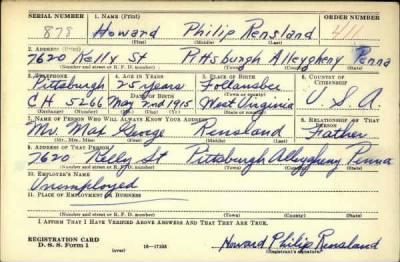 SERIAL NUMBER 1. NAME (Print) ORDER NUMBER
878 Howard Philip Rensland 411
(First) (Middle) (Last)
2. ADDRESS (Print)
7620 Kelly St Pittsburgh Allegheny Penna
(Number and street or R. F. D. number) (Town) (County) (State)
3. TELEPHONE 4. AGE IN YEARS 5. PLACE OF BIRTH 6. COUNTRY OF CITIZENSHIP
Pittsburgh 25 years Follansbee
DATE OF BIRTH (Town or county)
CH. 5266 May 2nd 1915 West Virginia U. S. A.
(Exchange) (Number) (Mo.) (Day) (Yr.) (State or country)
7. NAME OF PERSON WHO WILL ALWAYS KNOW YOUR ADDRESS 8. RELATIONSHIP OF THAT PERSON
Mr. Max George Rensland Father
(Mr., Mrs., Miss) (First) (Middle) (Last)
9. ADDRESS OF THAT PERSON
7620 Kelly St Pittsburgh Allegheny Penna
(Number and street or R. F. D. number) (Town) (County) (State)
10. EMPLOYER'S NAME
Unemployed
11. PLACE OF EMPLOYMENT OR BUSINESS
(Number and street or R. F. D. number) (Town) (County) (State)
I AFFIRM THAT I HAVE VERIFIED ABOVE ANSWERS AND THAT THEY ARE TRUE.
REGISTRATION CARD
D. S. S. Form 1 (over) 16—17105 Howard Philip Rensland
(Registrant's signature)